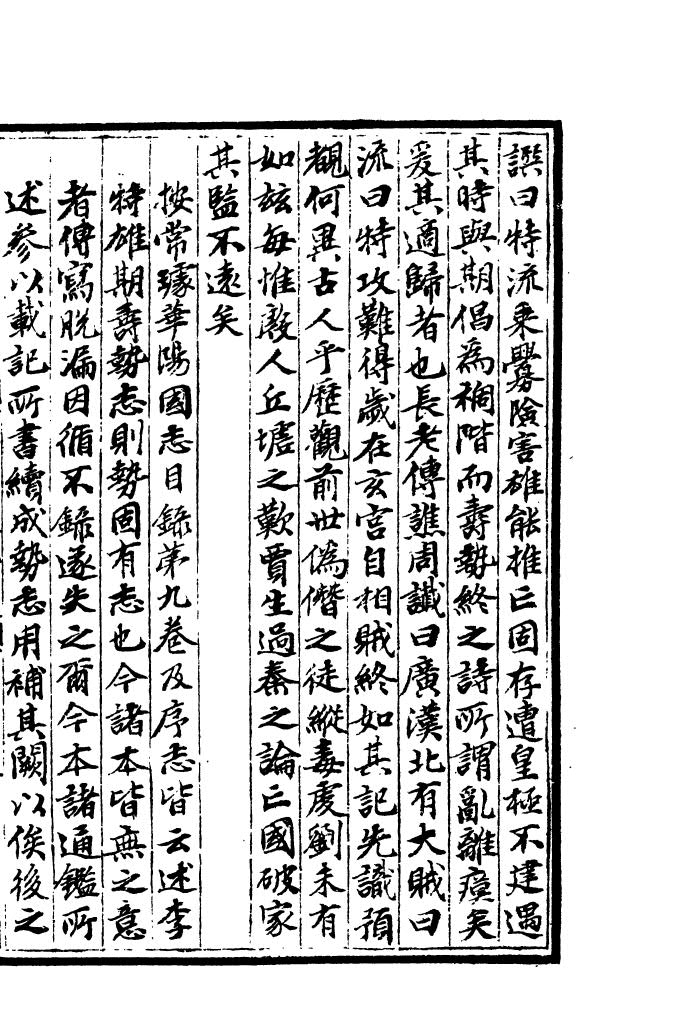 譔曰特流乗釁險害雄能推亡固存遭皇極不建遇
其時與期倡為禍階而壽勢終之詩所謂亂離瘼矣
爰其適歸者也長老傳譙周讖曰廣漢北有大賊曰
流曰特攻難得歲在玄宮自相賊終如其記先識預
覩何異古人乎歷觀前世偽僭之徒縱毒虔劉未有
如兹每惟殷人丘墟之歎賈生過秦之論亡國破家
其監不遠矣
按常璩華陽國志目錄第九卷及序志皆云述李
特雄期壽勢志則勢固有志也今諸本皆無之意
者傳寫脫漏因循不錄遂失之爾今本諸通鑑所
述參以載記所書續成勢志用補其闕以俟後之